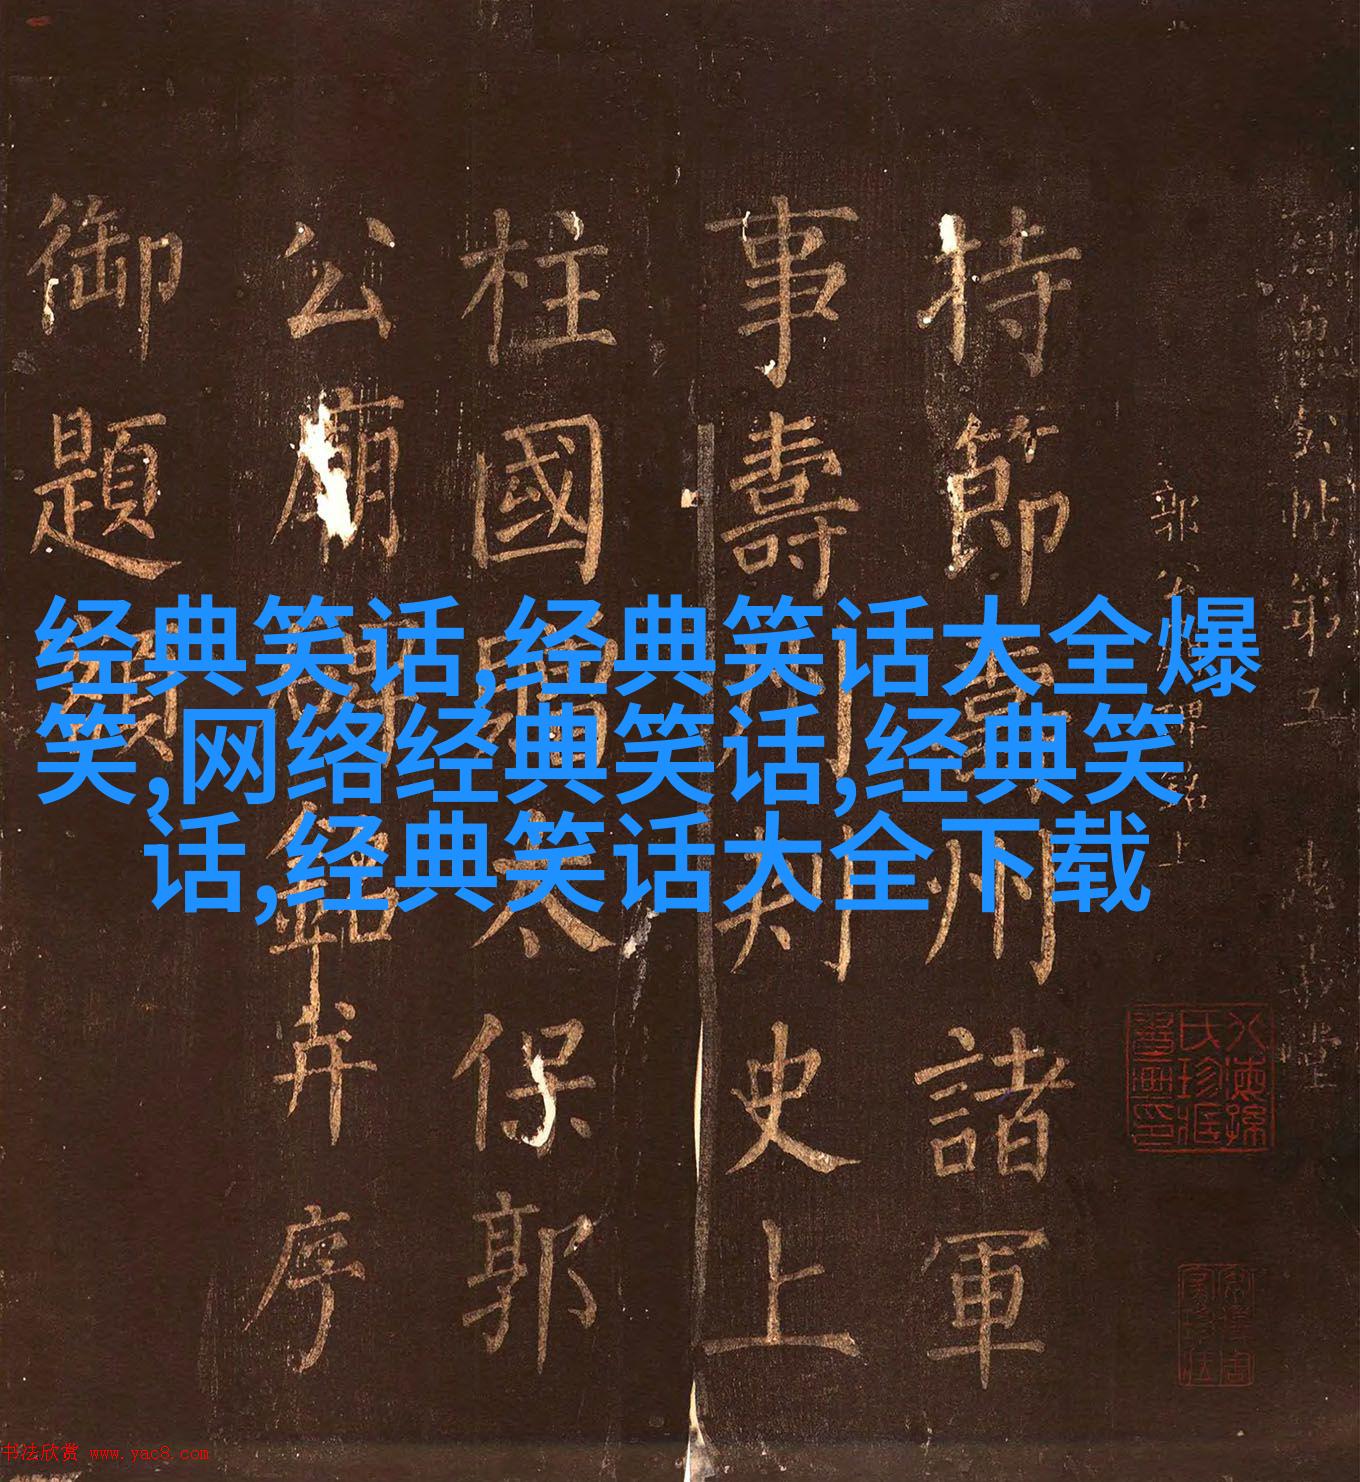 經典笑话,经典笑话大全爆
笑,网络经典笑话,经典笑
话,经典笑话大全下载
郭公
持節壽州諸軍
事壽州刺史上
柱國贈太保郭
公廟碑銘并序
御題額
书法欣赏 www.yac8.com